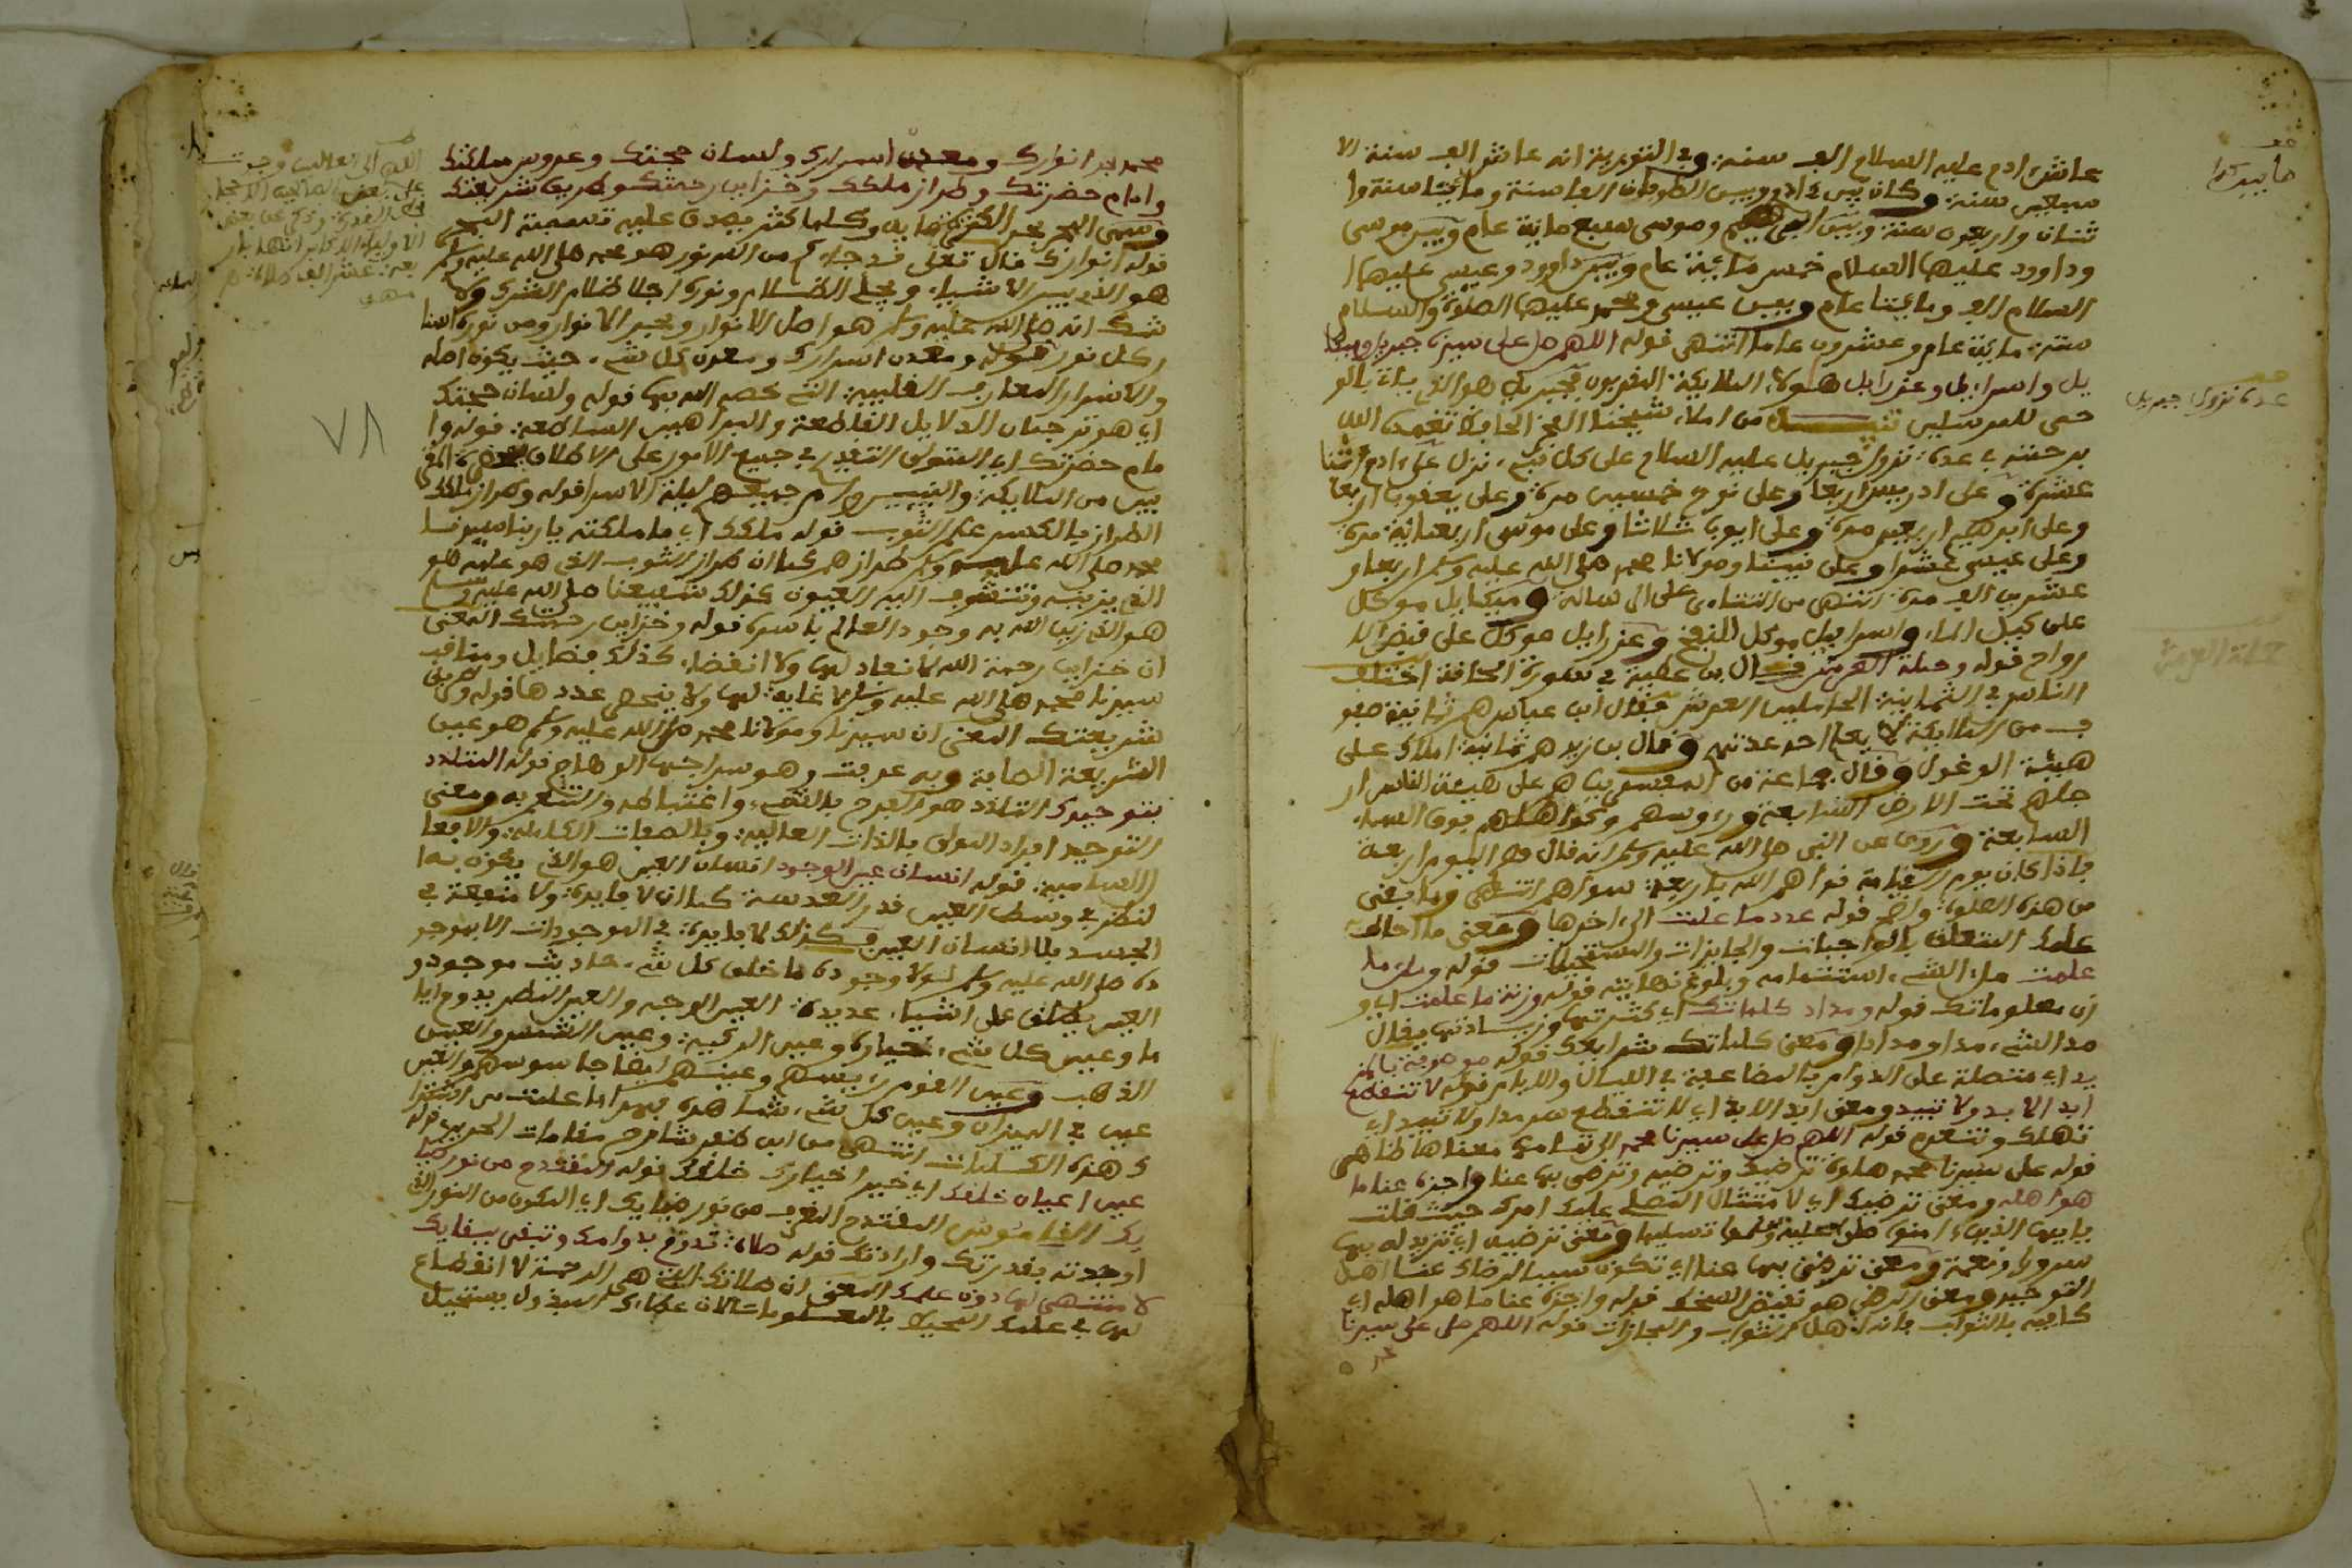 عاش ادم عليه السلام الف سنة وفي التورية انه عاش الف سنة الا
سبعين سنة وكان بين ءادم وبين الطوفان الفا سنة ومايتا سنة وا
ثنان واربعون سنة وبين ابراهيم وموسى سبع ماية عام وبين موسى
وداوود عليهما السلام خمس ماية عام وبين داوود وعيسى عليهما ا
السلام الف ومايتا عام وبين عيسى ومحمد عليهما الصلوة والسلام
ستة ماية عام وعشرون عاما انتهى قوله اللهم صل على سيدنا جبريل وميكا
يل واسرافيل وعزرايل هؤلاء الملايكة المقربون فجبريل هو الذي ياتي بالو
حي للمرسلين تنبيه من املاء شيخنا الحافظ تغمده الله
برحمته في عدة نزول جبريل عليه السلام على كل نبيء نزل على ءادم اثنا
عشرة وعلى ادريس اربعا وعلى نوح خمسين مرة وعلى يعقوب اربعا
وعلى ابرهيم اربعين مرة وعلى ايوب ثلاثا وعلى موسى اربعماية مرة
وعلى عيسى عشرا وعلى نبينا ومولانا محمد صلى الله عليه وسلم اربعا و
عشرين الف مرة انتهى من التتاءي على الرسالة وميكايل موكل
على كيل الماء واسرافيل موكل بالنفخ وعزرايل موكل على قبض الا
رواح قوله وحملة العرش قال بن عطية في سورة الحاقة اختلف
الناس في الثمانية الحاملين العرش فقال ابن عباس هم ثمانية صفو
ف من الملايكة لا يعلم احد عدتهم وقال بن زيد هم ثمانية املاك على
هيئة الوعول وقال جماعة من المفسرين هم على هيئة الناس ار
جلهم تحت الارض السابعة ورءوسهم وكواهلهم فوق السماء
السابعة وروي عن النبي صلى الله عليه وسلم انه قال هم اليوم اربعة
فاذا كان يوم القيامة قواهم الله باربعة سواهم انتهى وما بقي
من هذه الصلوة واضح قوله عدد ما علمت الى اخرها ومعنى ما احاط
علمك المتعلق بالواجبات والجايزات والمستحيلات قوله وملء ما
علمت ملء الشيء استتمامه وبلوغ نهايته قوله وزنة ما علمت اي و
زن معلوماتك قوله ومداد كلماتك اي كثرتها وزيادتها يقال
مد الشيء مدا ومدادا ومعنى كلماتك شرايعك قوله موصوفة بالمز
يد اي متصلة على الدوام بالمضاعفة في الليالي والايام قوله لا تنقطع
ابد الابد ولا تبيد ومعنى ابد الابد اي لا تنقطع سرمدا ولا تبيد اي
تهلك وتنعدم قوله اللهم صل على سيدنا محمد الى تمامها معناها ظاهر
قوله على سيدنا محمد صلوة ترضيك وترضيه وترضى بها عنا واجزه عنا ما
هو اهله ومعنى ترضيك اي لامتثال المصلي عليه امرك حيث قلت
يايها الذين ءامنوا صلوا عليه وسلموا تسليما ومعنى ترضيه اي تزيد له بها
سرورا ونعمة ومعنى ترضى بها عنا اي تكون سببا لرضاك عنا اهل
التوحيد ومعنى الرضى هو نقيض السخط قوله واجزه عنا ما هو اهله اي
كافيه بالثواب فانه اهل الثواب والمجازات قوله اللهم صل على سيدنا
عدة نزول جبريل
حملة العرش
محمد بحر انوارك ومعدن اسرارك ولسان حجتك وعروس مملكتك
وامام حضرتك وطراز ملكك وخزاين رحمتك وطريق شريعتك
وسمي البحر بحرا لكثرة مايه وكلما كثر يصدق عليه تسمية البحر
قوله انوارك قال تعلى قد جاءكم من الله نور هو محمد صلى الله عليه وسلم
هو الذي يبين الاشياء ويجلي الظلام ونوره اجلا ظلام الشرك ولا
شك انه صلى الله عليه وسلم هو اصل الانوار وبحر الانوار ومن نوره استنا
ر كل نور قوله ومعدن اسرارك ومعدن كل شيء حيث يكون اصله
والاسرار المعارف القلبية التي خصه الله بها قوله ولسان حجتك
اي هو ترجمان الدلايل القاطعة والبراهين الساطعة قوله وا
مام حضرتك اي المتولي التقديم في جميع الامور على الاطلاق
بين من الملايكة والنبيين وام جميعهم ليلة الاسرا قوله وطراز ملكك
الطراز بالكسر علم الثوب قوله ملكك اي ما ملكته يا ربنا سيدنا
محمد صلى الله عليه وسلم طرازهم كما ان طراز الثوب الذي هو علمه هو
الذي يزينه وتتشوف اليه العيون كذلك شفيعنا صلى الله عليه وسلم
هو الذي زين الله به وجود العالم باسره قوله وخزاين رحمتك المعنى
ان خزاين رحمة الله لا نفاد لها ولا انقضاء كذلك فضايل ومناقب
سيدنا محمد صلى الله عليه وسلم لا غاية لها ولا ينحصى عددها قوله وطريق
شريعتك المعنى ان سيدنا ومولانا محمد صلى الله عليه وسلم هو عين
الشريعة الصافية وبه عرفت وهو سراجها الوهاج قوله المتلذذ
بتوحيدك التلذذ هو الفرح بالشيء واغتباطه والتنعم به ومعنى
التوحيد افراد المولى بالذات العالية وبالصفات الكاملة والافعا
ل السامية قوله انسان عين الوجود انسان العين هو الذي يكون به ا
لنظر في وسط العين قدر العدسة كما ان لا فايدة ولا منفعة في
الجسد بلا انسان العين فكذلك لا فايدة في الموجودات الا بوجو
ده صلى الله عليه وسلم لولا وجوده ما خلق كل شيء حادث موجود و
العين يطلق على اشياء عديدة العين الوجه والعين النظر
ما وعين كل شيء خياره وعين الركبة وعين الشمس والعين
الذهب وعين القوم رييسهم وعينهم ايضا جاسوسهم والعين
عيب في الميزان وعين كل شيء شاهده فهذا ما علمت من اشترا
ك هذه الكلمات انتهى من ابن ظفر شارح مقامات الحريري قوله
عين اعيان خلقك اي خير اخيارك خلقك قوله المتقدم من نور ضيا
يك المتقدم المعروف من نور ضيايك اي المكون من النور الذي
اوجدته بقدرتك وارادتك قوله صلاة تدوم بدوامك وتبقى ببقايك
لا منتهى لها دون علمك المعنى ان صلاتك التي هي الرحمة لا انقطاع
لها في علمك المحيط بالمعلومات لان علمك
٧٨